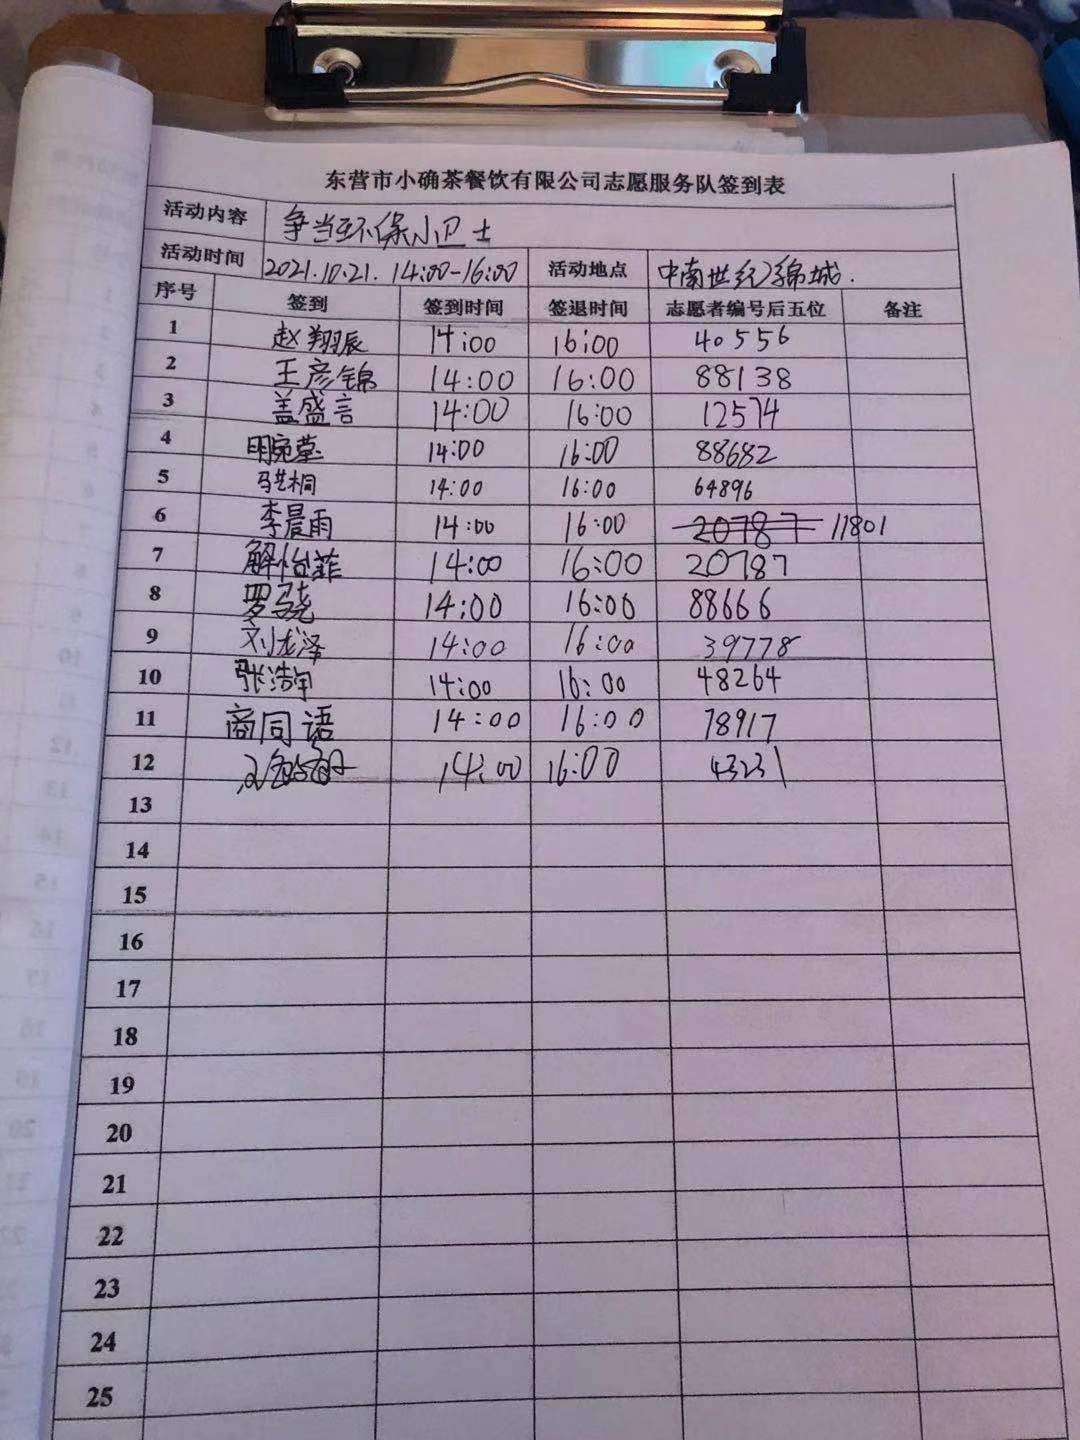 东营市小确茶餐饮有限公司志愿服务队签到表
活动内容 争当环保小卫士
活动时间 2021.10.21. 14:00-16:00 活动地点 中南世纪锦城.
序号 签到 签到时间 签退时间 志愿者编号后五位 备注
1 赵翔辰 14:00 16:00 40556
2 王彦锦 14:00 16:00 88138
3 盖盛言 14:00 16:00 12574
4 14:00 16:00 88682
5 14:00 16:00 64896
6 李晨雨 14:00 16:00 20787 11801
7 解怡菲 14:00 16:00 20787
8 罗骁 14:00 16:00 88666
9 刘龙泽 14:00 16:00 39778
10 张浩宇 14:00 16:00 48264
11 商同语 14:00 16:00 78917
12 14:00 16:00 43231
13
14
15
16
17
18
19
20
21
22
23
24
25